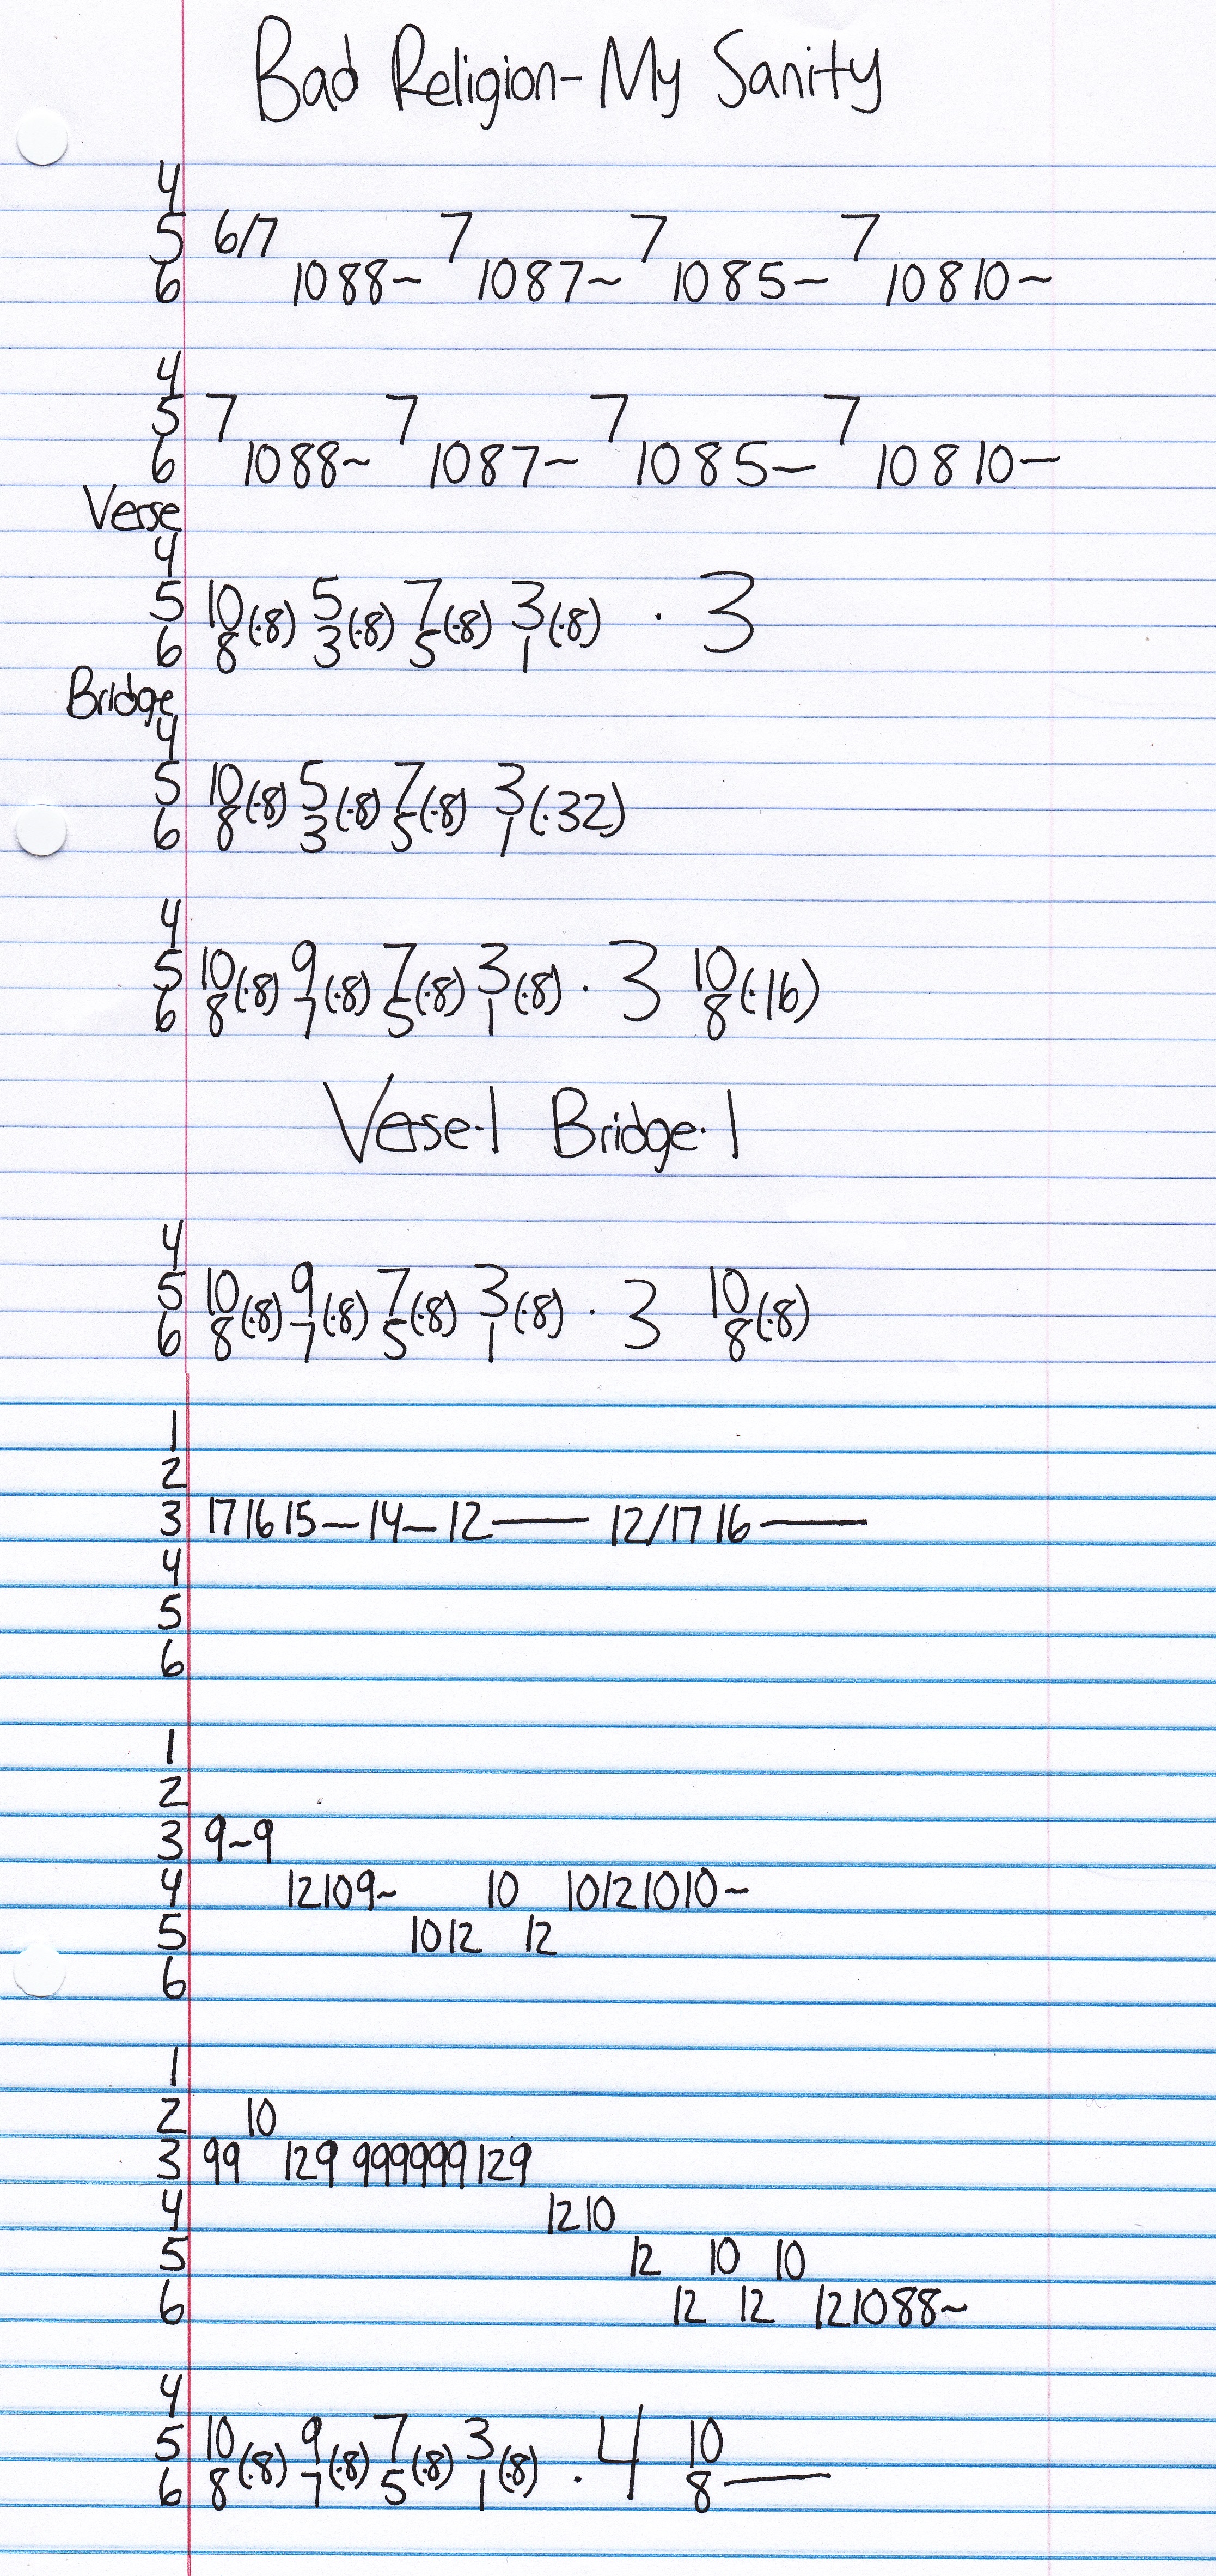 Bad Religion- My Sanity
4
5 6/7 7 7 7
6 10 8 8~ 10 8 7~ 10 8 5~ 10 8 10~
4
5 7 7 7 7
6 10 8 8~ 10 8 7~ 10 8 5~ 10 8 10~
Verse
4
5 10 5 7 3
(·8) (·8) (·8) (·8) · 3
6 8 3 5 1
Bridge
4
5 10 5 7 3
(·8) (·8) (·8) (·32)
6 8 3 5 1
4
5 10 9 7 3 10
(·8) (·8) (·8) (·8) · 3 (·16)
6 8 7 5 1 8
Verse·1 Bridge·1
4
5 10 9 7 3 10
(·8) (·8) (·8) (·8) · 3 (·8)
6 8 7 5 1 8
1
2
3 17 16 15~14~12— 12/17 16—
4
5
6
1
2
3 9~9
4 12 10 9~ 10 10 12 10 10~
5 10 12 12
6
1
2 10
3 9 9 12 9 9 9 9 9 9 9 12 9
4 12 10
5 12 10 10
6 12 12 12 10 8 8~
4
5 10 9 7 3 10
(·8) (·8) (·8) (·8) · 4
6 8 7 5 1 8—